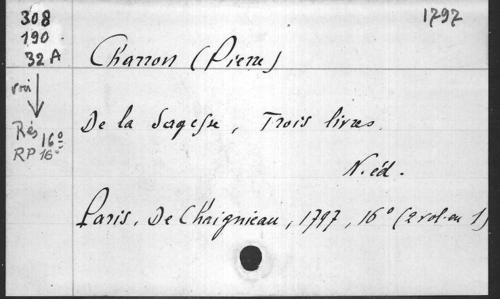 1797
308
190
32 A
Charron (Pierre)
voir
De la Sagesse, Trois livres.
Rés 16°
RP 16°
N. éd.
Paris, De Chaignieau, 1797, 16° (2 vol. en 1)